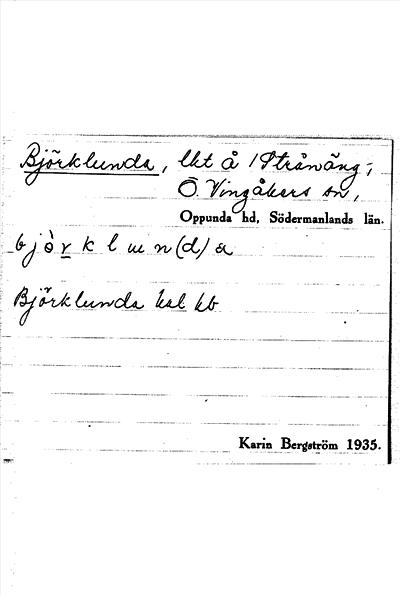 Björklunda, lht å 1 Strånäng,
Ö. Vingåkers sn,
Oppunda hd, Södermanlands län.
b j ö r k l u n (d) a
Björklunda hal kb
Karin Bergström 1935.